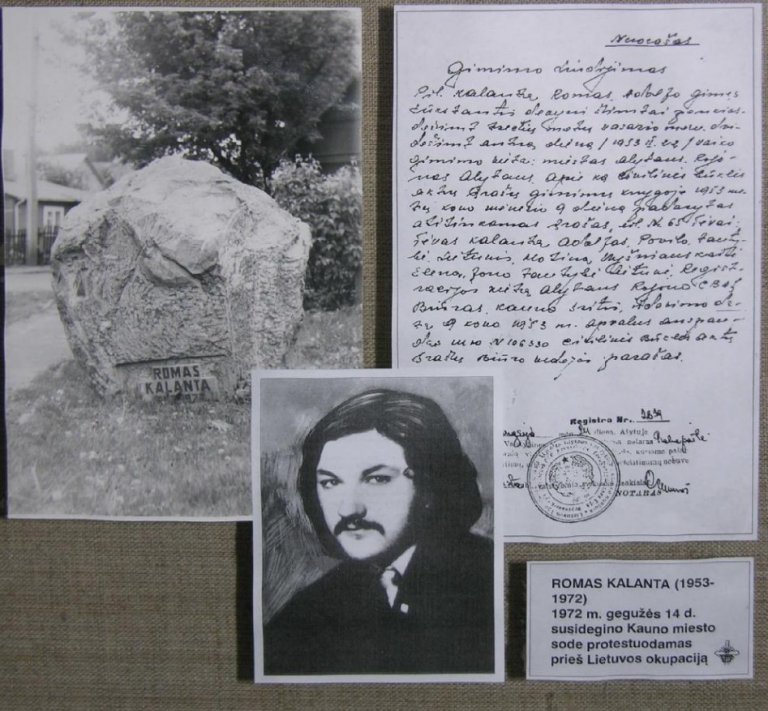 ROMAS
KALANTA
Nuorašas
Gimimo liudijimas
Pil. Kalanta, Romas, Adolfo gimęs
tūkstantis devyni šimtai penkias-
dešimt trečių metų vasario mėn. dvi-
dešimt antrą dieną / 1953.II.22 / vaiko
gimimo vieta: miestas Alytaus. Rajo-
nas Alytaus, apie ką civilinės būklės
aktų įrašų gimimų knygoje 1953 me-
tų kovo mėnesio 9 dieną padarytas
atitinkamas įrašas, Nr. 65. Tėvai:
Tėvas Kalanta, Adolfas, Povilo, tauty-
bė lietuvis, motina
Elena, Jono tautybė lietuvė. Regist-
racijos vieta Alytaus Rajono CBAĮ
Biuras, Kauno sritis, išdavimo da-
ta 9 kovo 1953 m. apvalus antspau-
das Nr. N 106330 civilinės būklės aktų
įrašų biuro vedėjos parašas.
Registro Nr.
Alytuje
notaras
NOTARAS
ROMAS KALANTA (1953-
1972)
1972 m. gegužės 14 d.
susidegino Kauno miesto
sode protestuodamas
prieš Lietuvos okupaciją